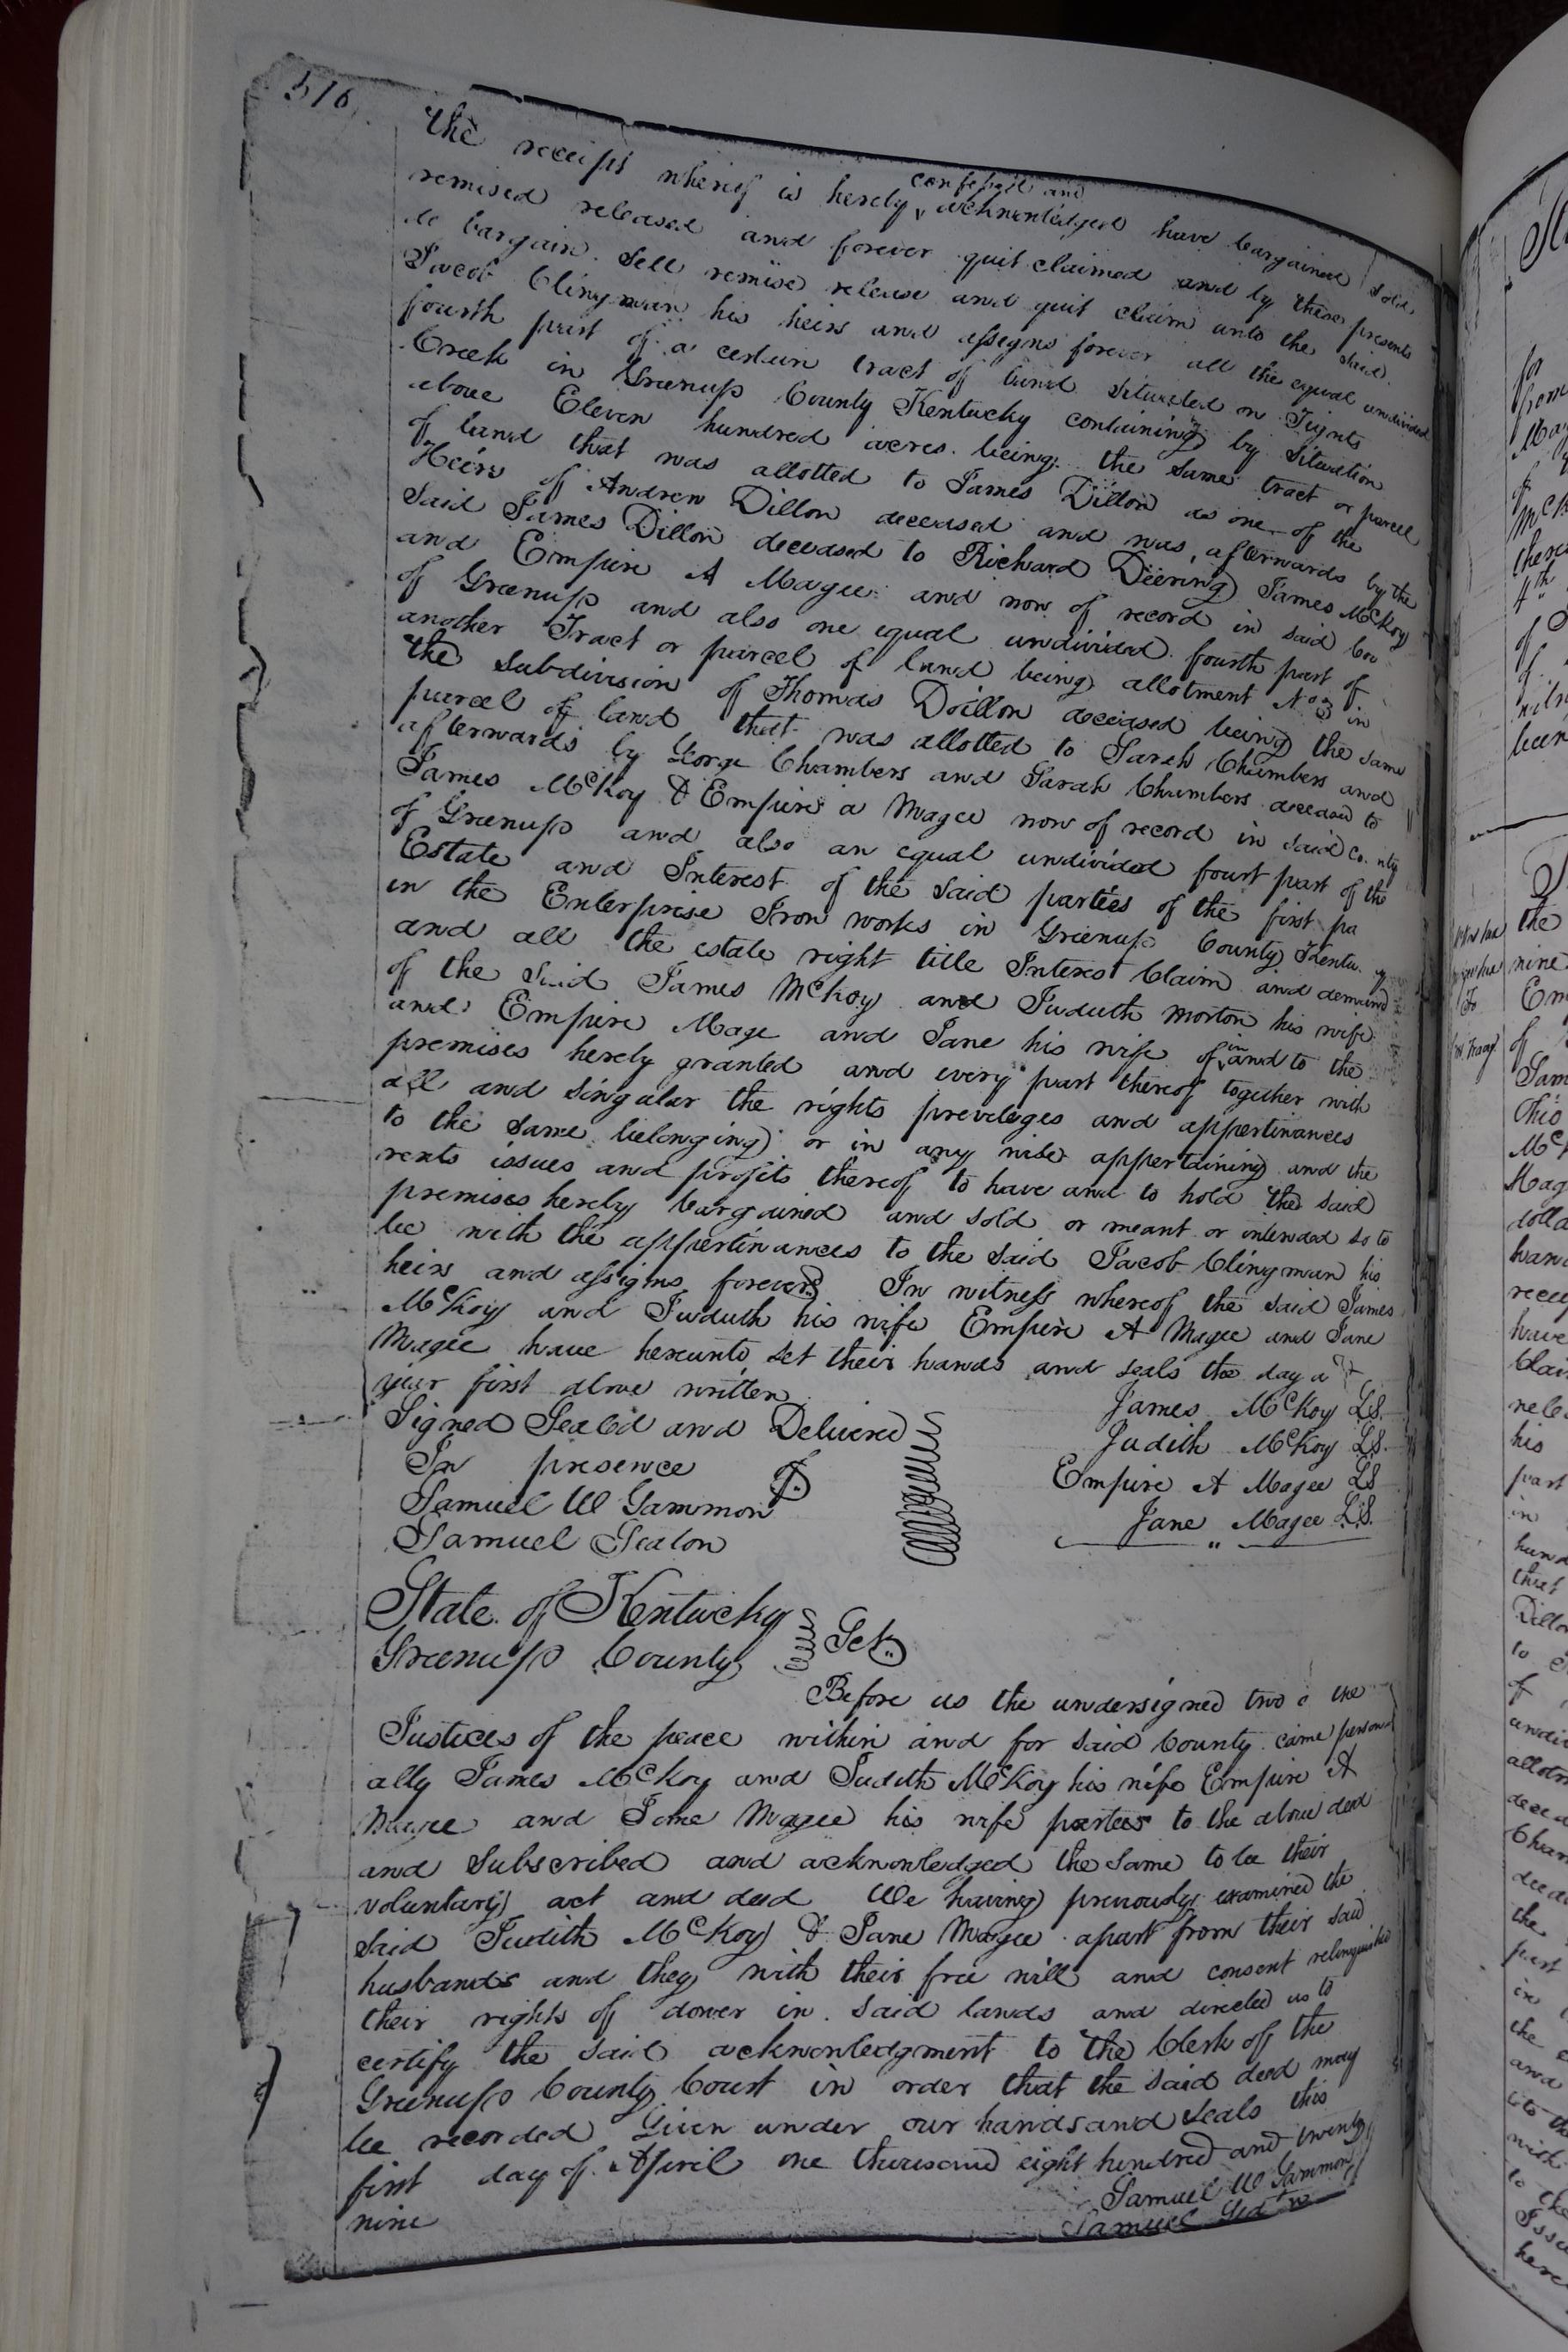 516
The receipt whereof is hereby confessed and acknowledged have bargained sold
remised released and forever quit claimed and by these presents
do bargain Sell remise release and quit claim unto the said
Jacob Clingman his heirs and assigns forever all the equal undivided
fourth part of a certain tract of land Situated on Tignts
Creek in Greenup County Kentucky containing by Situation
above Eleven hundred acres being the same tract or parcel
of land that was allotted to James Dillon as one of the
Heirs of Andrew Dillon deceased and was afterwards by the
said James Dillon deceased to Richard Deering James McKoy
and Empire A Magee and now of record in said Cou
of Greenup and also one equal undivided fourth part of
another Tract or parcel of land being allotment No 3 in
the Subdivision of Thomas Doillon deceased being the same
parcel of land that was allotted to Sarah Chambers and
afterwards by George Chambers and Sarah Chambers deceased to
James McKoy & Empire a Magee now of record in said County
of Greenup and also an equal undivided fourt part of the
Estate and Interest of the said parties of the first pa
in the Enterprise Iron works in Greenup County Kentu y
and all the estate right title Interest Claim and demand
of the Said James McKoy and Juduth Morton his wife
and Empire Mage and Jane his wife of in and to the
premises hereby granted and every part thereof together with
all and singular the rights previleges and appertinances
to the same belonging or in any wise appertaining and the
rents issues and profits thereof to have and to hold the said
premises hereby bargained and sold or meant or intended so to
be with the appertinances to the said Jacob Clingman his
heirs and assigns forever In witness whereof the said James
McKoy and Juduth his wife Empire A Magee and Jane
Magee have hereunto set their hands and seals the day a
year first above written
Signed Sealed and Delivered James McKoy LS.
In presence Judith McKoy LS.
Samuel W Gammon Empire A Magee LS
Samuel Seaton Jane Magee LS.
State of Kentucky
Greenup County Sct.
Before us the undersigned two o the
Justices of the peace within and for said County came person
ally James McKoy and Judith McKoy his wife Empire A
Magee and Jane Magee his wife partees to the above deed
and Subscribed and acknowledged the same to be their
voluntary act and deed We having previously examined the
said Judith McKoy & Jane Magee apart from their said
husbands and they with their free will and consent relinquished
their rights of dower in said lands and directed us to
certify the said acknowledgment to the Clerk off the
Greenup County Court in order that the said deed may
be recorded Given under our hands and seals this
first day of April one thousand eight hundred and twenty
nine Samuel W Gammon
Samuel Seaton